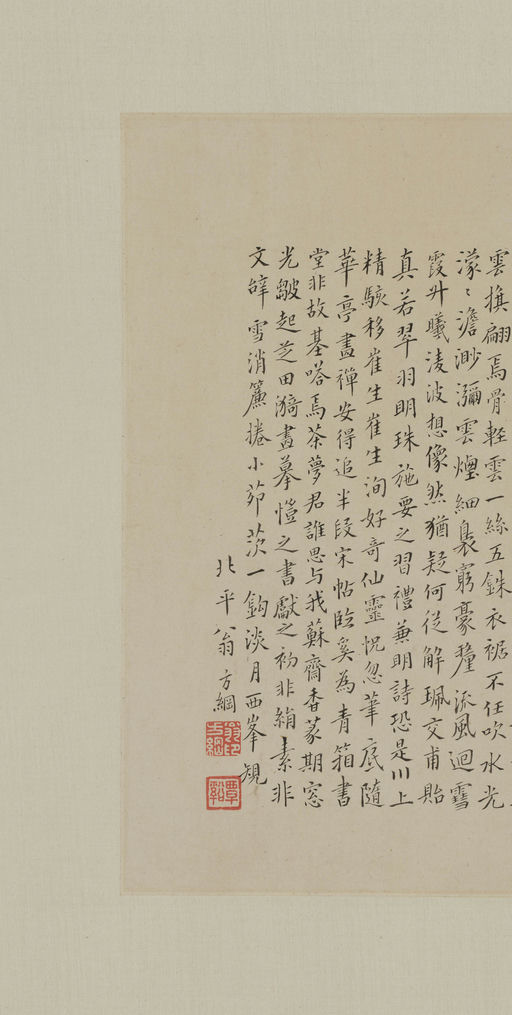 雲旗翩焉骨軽雲一絲五銖衣裾不任吹水光
濛〻澹渺瀰雲煙細裊窮豪釐流風迴雪
霞升曦淩波想像然猶疑何從解珮交甫貽
真若翠羽明珠施要之習禮兼明詩恐是川上
精駭移崔生崔生洵好奇仙靈怳忽筆底隨
華亭畫禪安得追半段宋帖臨奚為青箱書
堂非故基嗒焉茶夢君誰思与我蘇齋香篆期窓
光皺起芝田漪畫摹愷之書獻之初非絹素非
文辭雪消簾捲小茆茨一鉤淡月西峯規
北平翁方綱
翁方綱印
覃谿